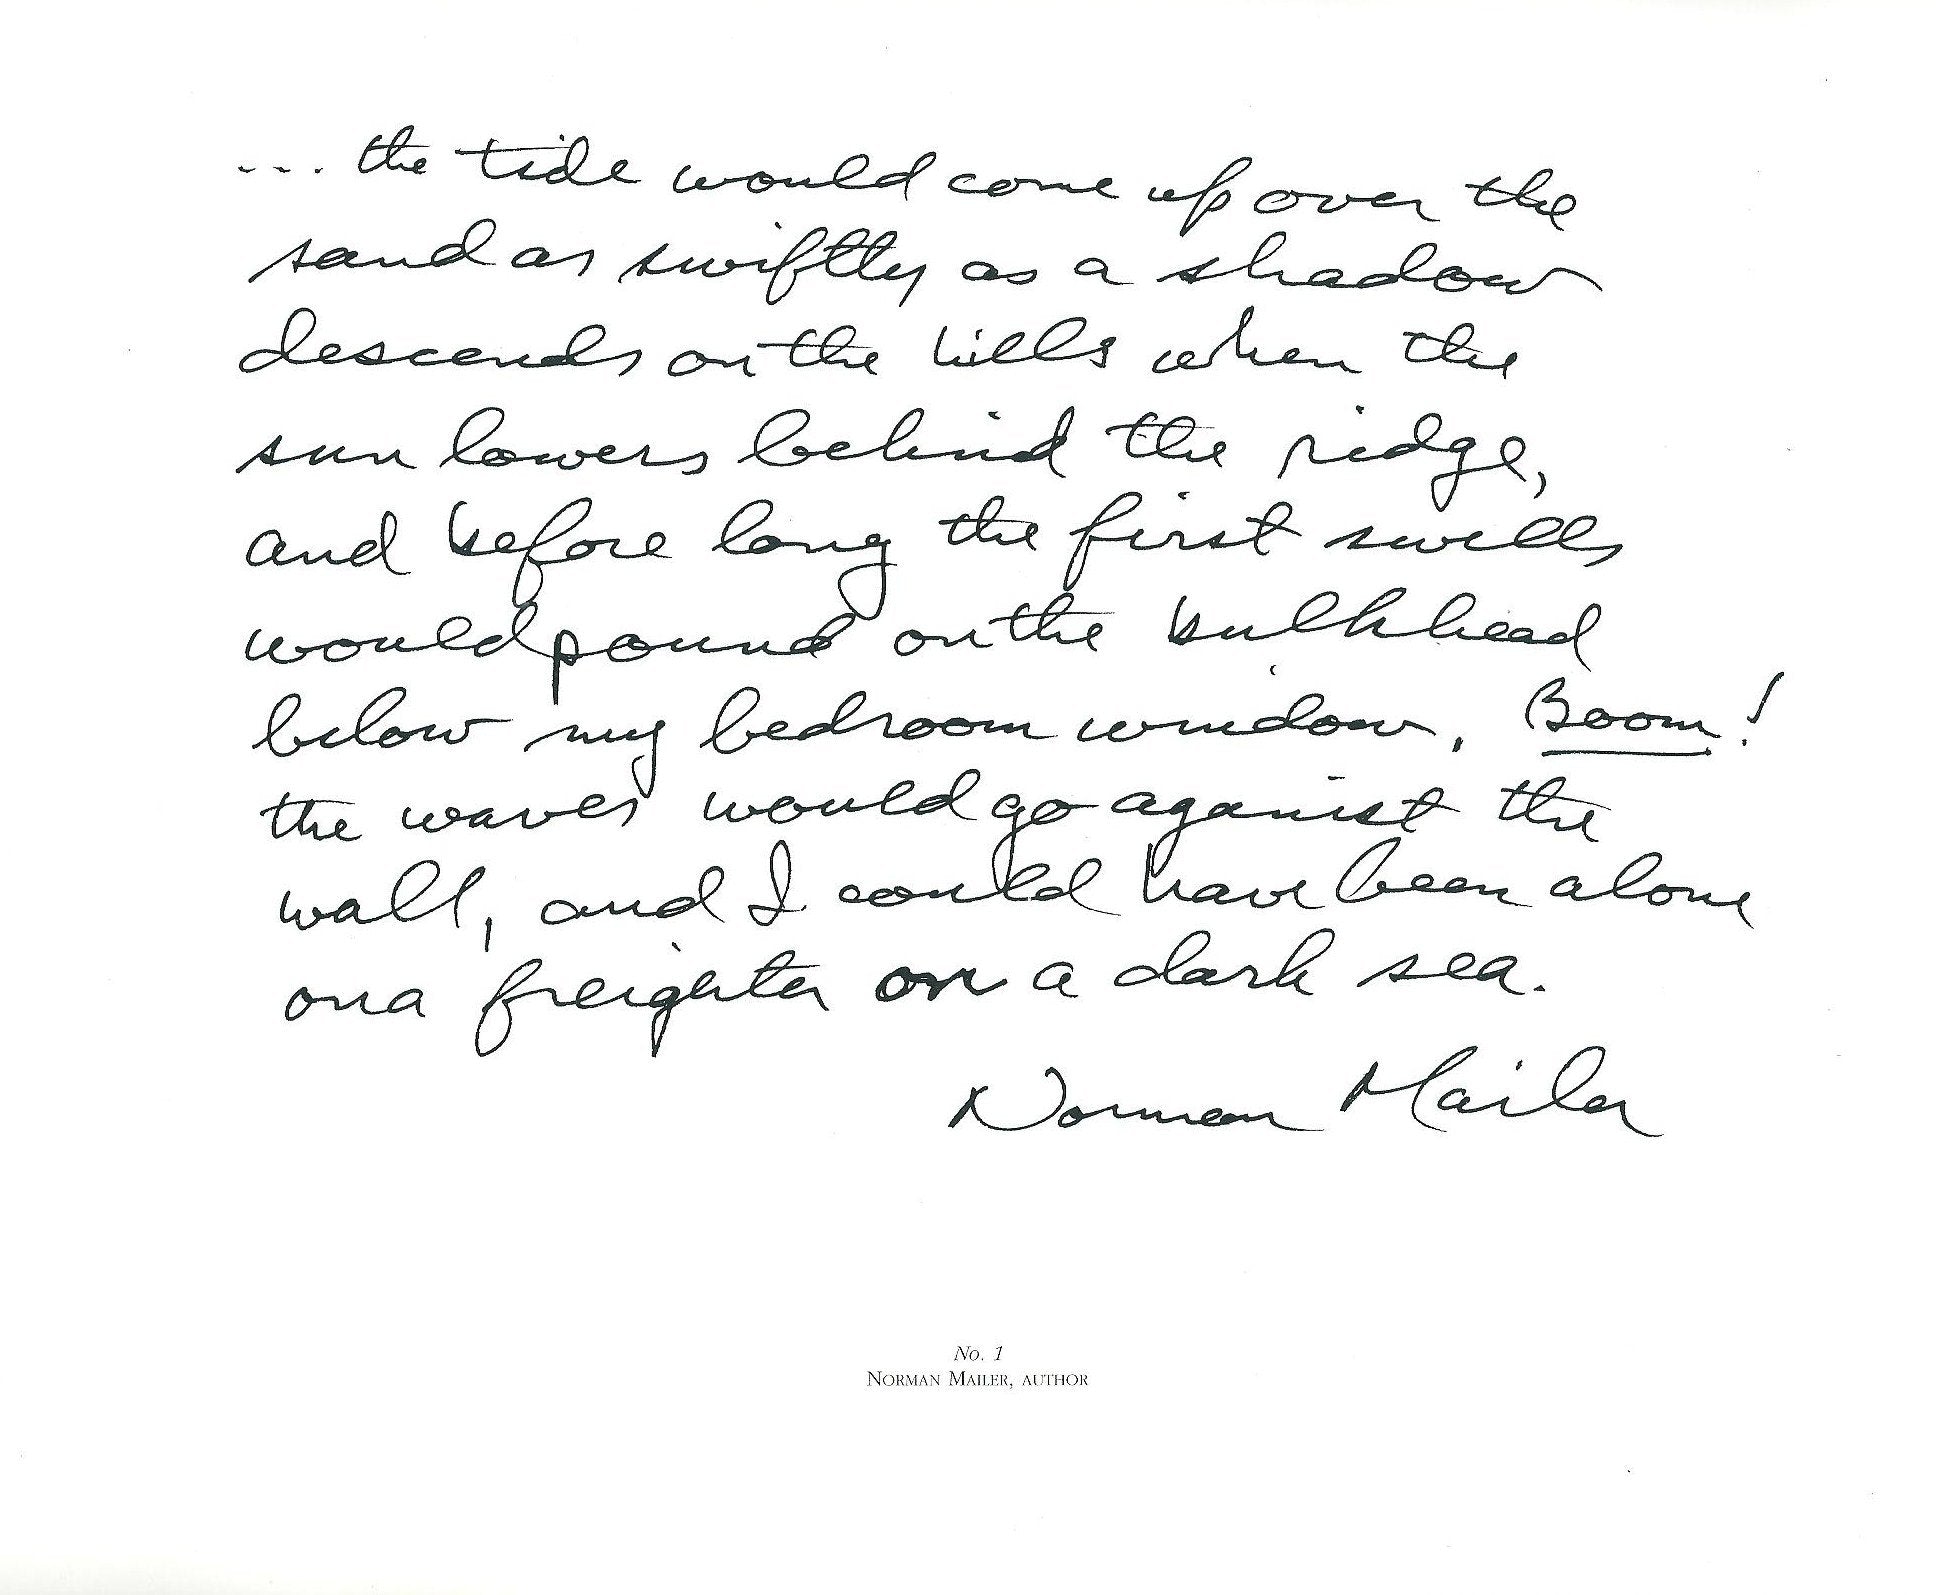 ... the tide would come up over the
sand as swiftly as a shadow
descends on the hills when the
sun lowers behind the ridge,
and before long the first swells
would pound on the bulkhead
below my bedroom window. Boom!
the waves would go against the
wall, and I could have been alone
on a freighter on a dark sea.
Norman Mailer
No. 1
NORMAN MAILER, AUTHOR